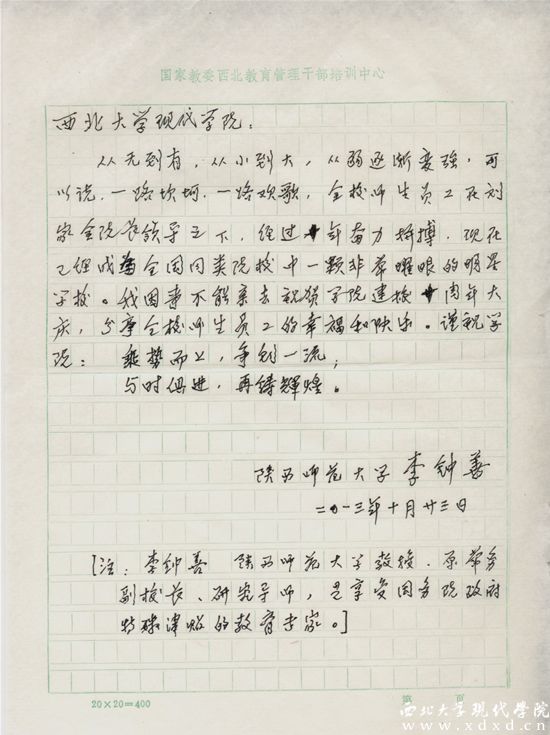 国家教委西北教育管理干部培训中心
西北大学现代学院：
从无到有，从小到大，从弱逐渐变强，可
以说，一路坎坷，一路欢歌，全校师生员工在刘
家全院长领导之下，经过十年奋力拼搏，现在
已经成为全国同类院校中一颗非常耀眼的明星
学校。我因事不能亲去祝贺学院建校十周年大
庆，分享全校师生员工的幸福和快乐。谨祝学
院：乘势而上，争创一流；
与时俱进，再铸辉煌。
陕西师范大学 李钟善
二〇一三年十月廿三日
[注：李钟善 陕西师范大学教授，原常务
副校长、研究导师，是享受国务院政府
特殊津贴的教育专家。]
20×20=400
第 页
西北大学现代学院
www.xdxd.cn